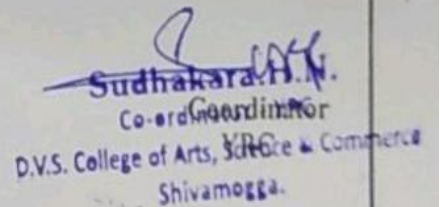 Sudhakara.H.N.
Co-ordinator
Coordinator
D.V.S. College of Arts, Science & Commerce
YRC
Shivamogga.